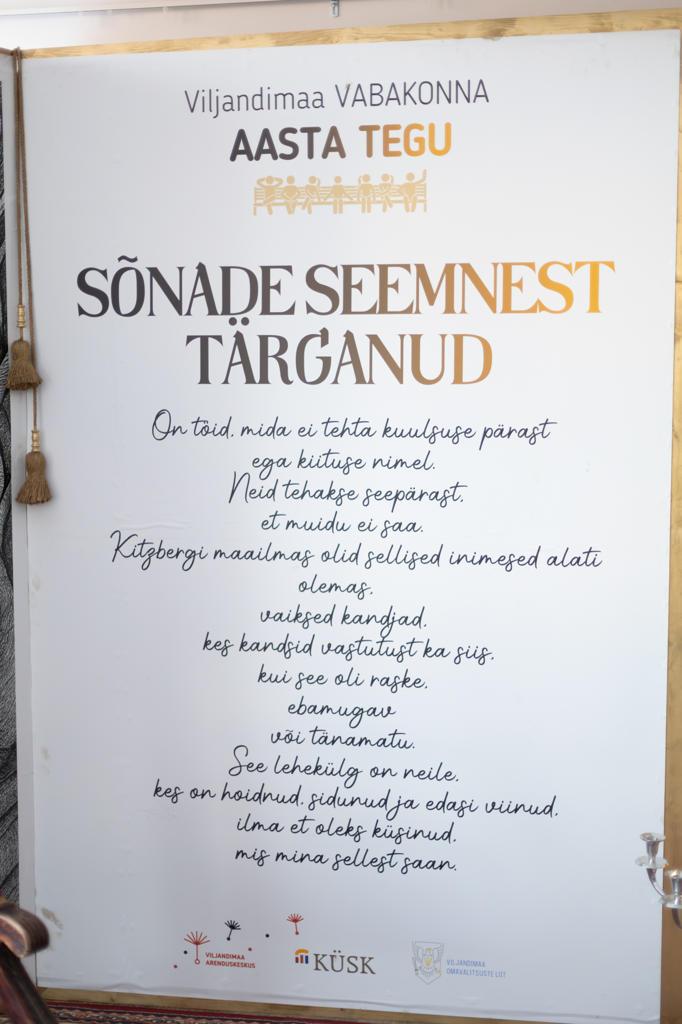 Viljandimaa VABAKONNA
AASTA TEGU
SÕNADE SEEMNEST
TÄRGANUD
On töid, mida ei tehta kuulsuse pärast
ega kiituse nimel.
Neid tehakse seepärast,
et muidu ei saa.
Kitzbergi maailmas olid sellised inimesed alati
olemas,
vaiksed kandjad,
kes kandsid vastutust ka siis,
kui see oli raske,
ebamugav
või tänamatu.
See lehekülg on neile,
kes on hoidnud, sidunud ja edasi viinud,
ilma et oleks küsinud,
mis mina sellest saan.
VILJANDIMAA
ARENDUSKESKUS
KÜSK
VILJANDIMAA
OMAVALITSUSTE LIIT